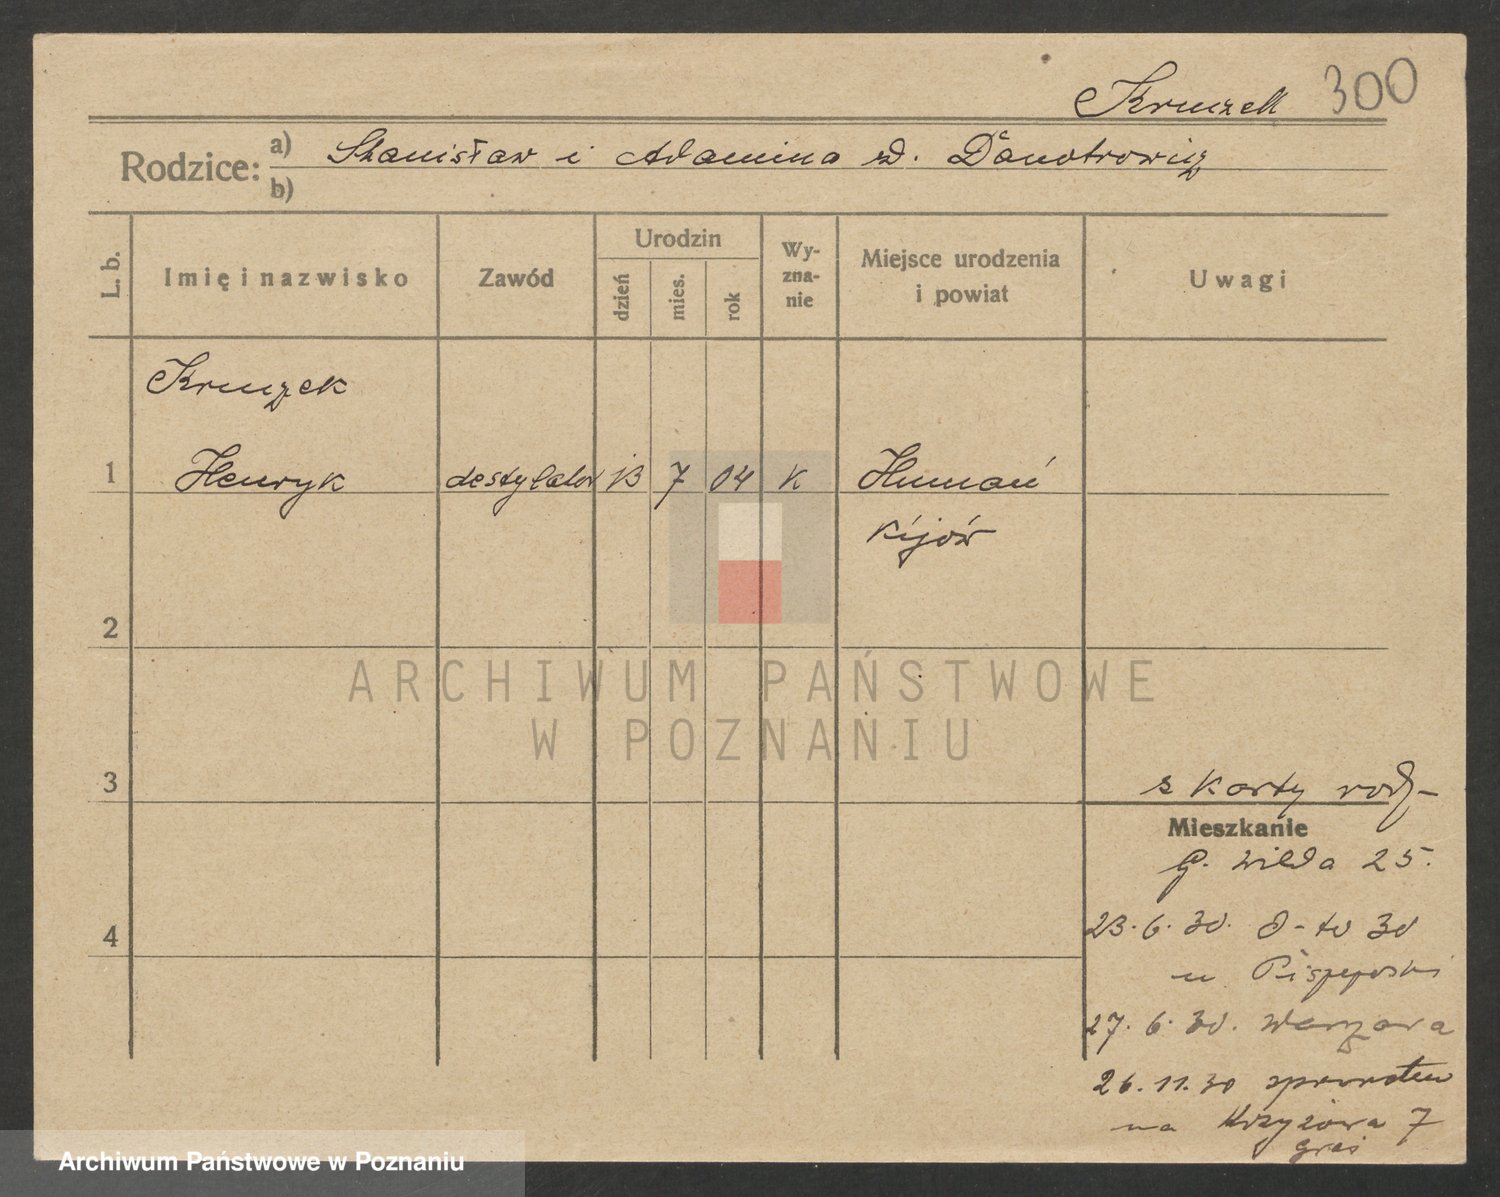 Kruczek 300
Rodzice: a) Stanisław i Adamina z d.
b)
L. b. Imię i nazwisko Zawód Urodzin dzień mies. rok Wyznanie Miejsce urodzenia i powiat Uwagi
Kruczek
1 Henryk destylator 13 7 04 k Humań
Kijów
2
3
z karty rodz-
Mieszkanie
G. Wilda 25.
4
23.6.30. d-to 30
u
27.6.30. Warszawa
26.11.30 zpowrotem
na Krzyżowa 7
ARCHIWUM PAŃSTWOWE
W POZNANIU
Archiwum Państwowe w Poznaniu